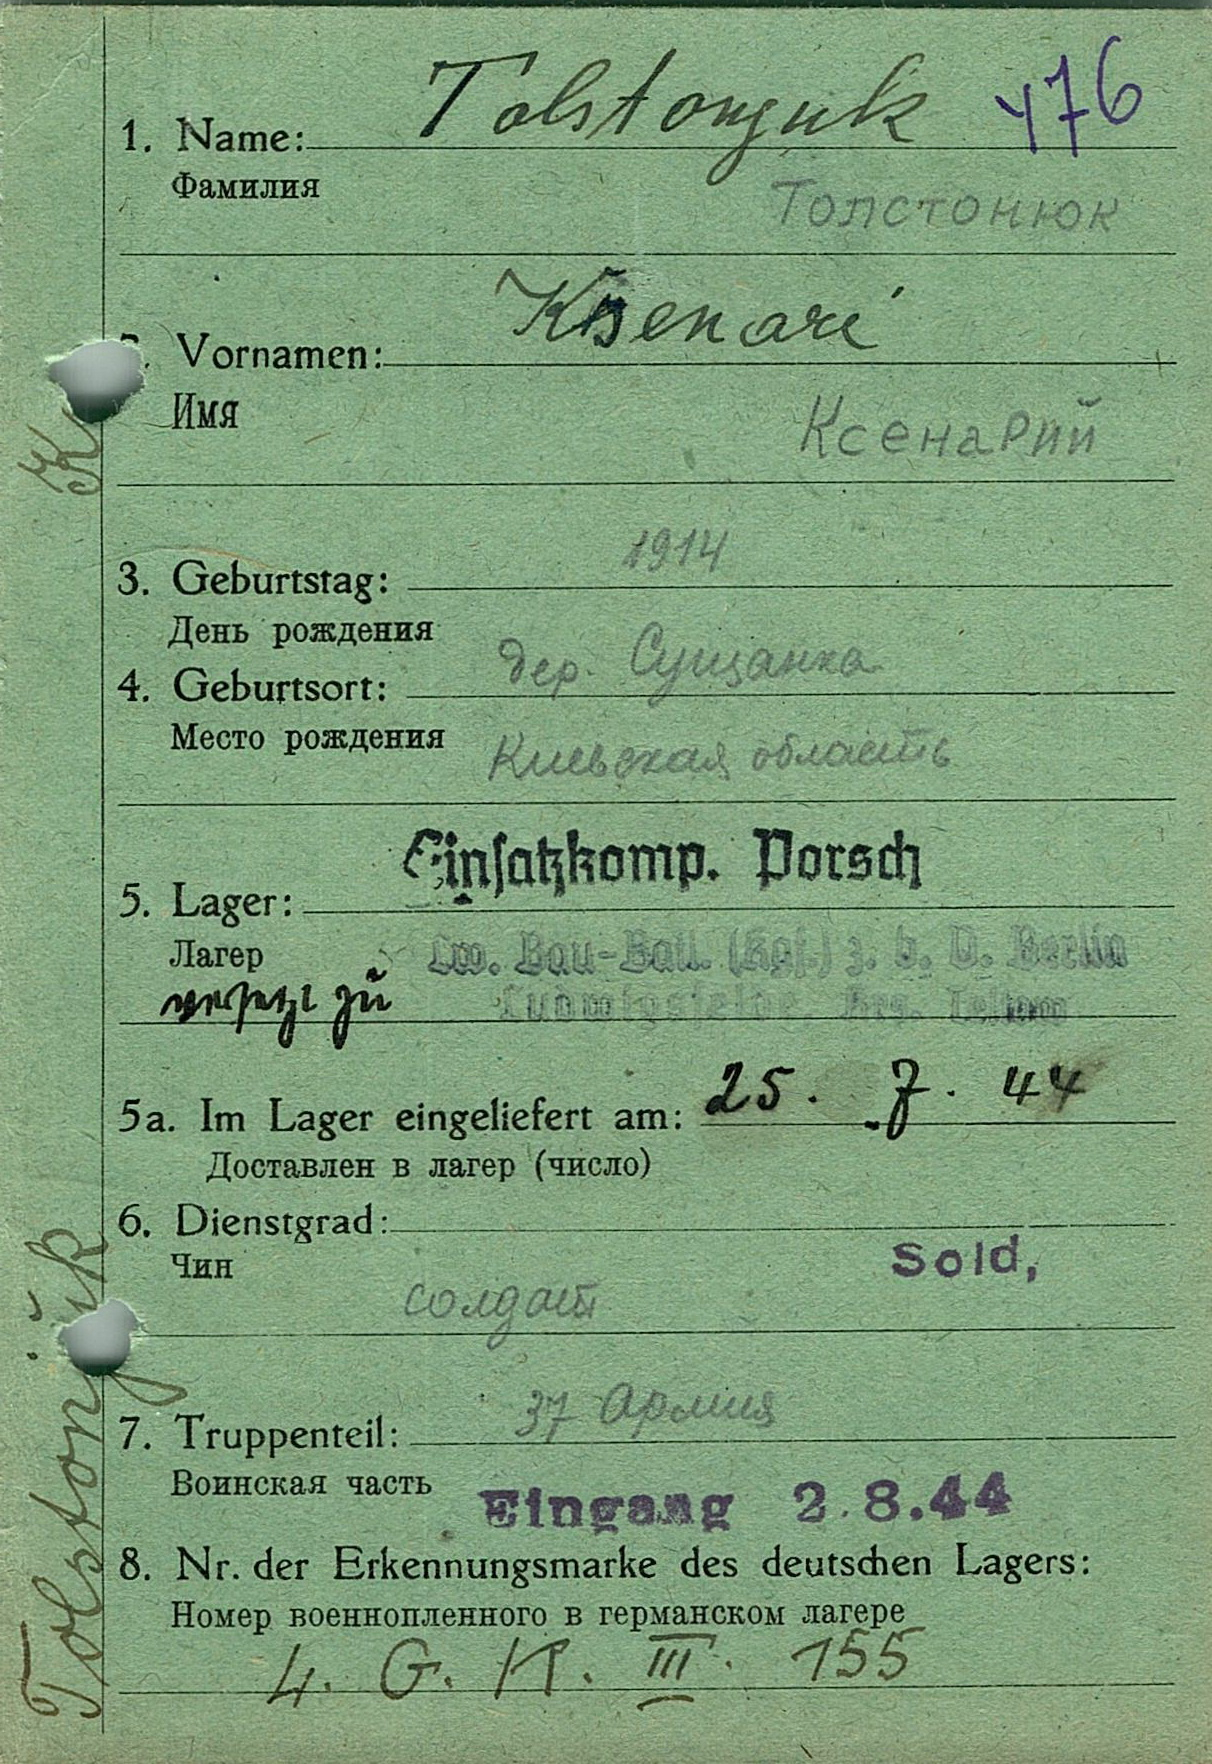 Tolstonjuk 476
1. Name:
Фамилия
Толстонюк
Ksenari
Vornamen:
Имя
Ксенарий
1914
3. Geburtstag:
День рождения
дер. Сущанка
4. Geburtsort:
Место рождения
Киевская область
Einsatzkomp. Porsch
5. Lager:
Лагер
Lw. Bau-Batl. (Kgf.) z. b. V. Berlin
versetzt zu
Ludwigsfelde. Krs. Teltow
5a. Im Lager eingeliefert am: 25. 7. 44
Доставлен в лагер (число)
6. Dienstgrad:
Чин
Sold,
солдат
37 Армия
7. Truppenteil:
Воинская часть
Eingang 2.8.44
8. Nr. der Erkennungsmarke des deutschen Lagers:
Номер военнопленного в германском лагере
4. G. K. III. 155
Tolstonjuk